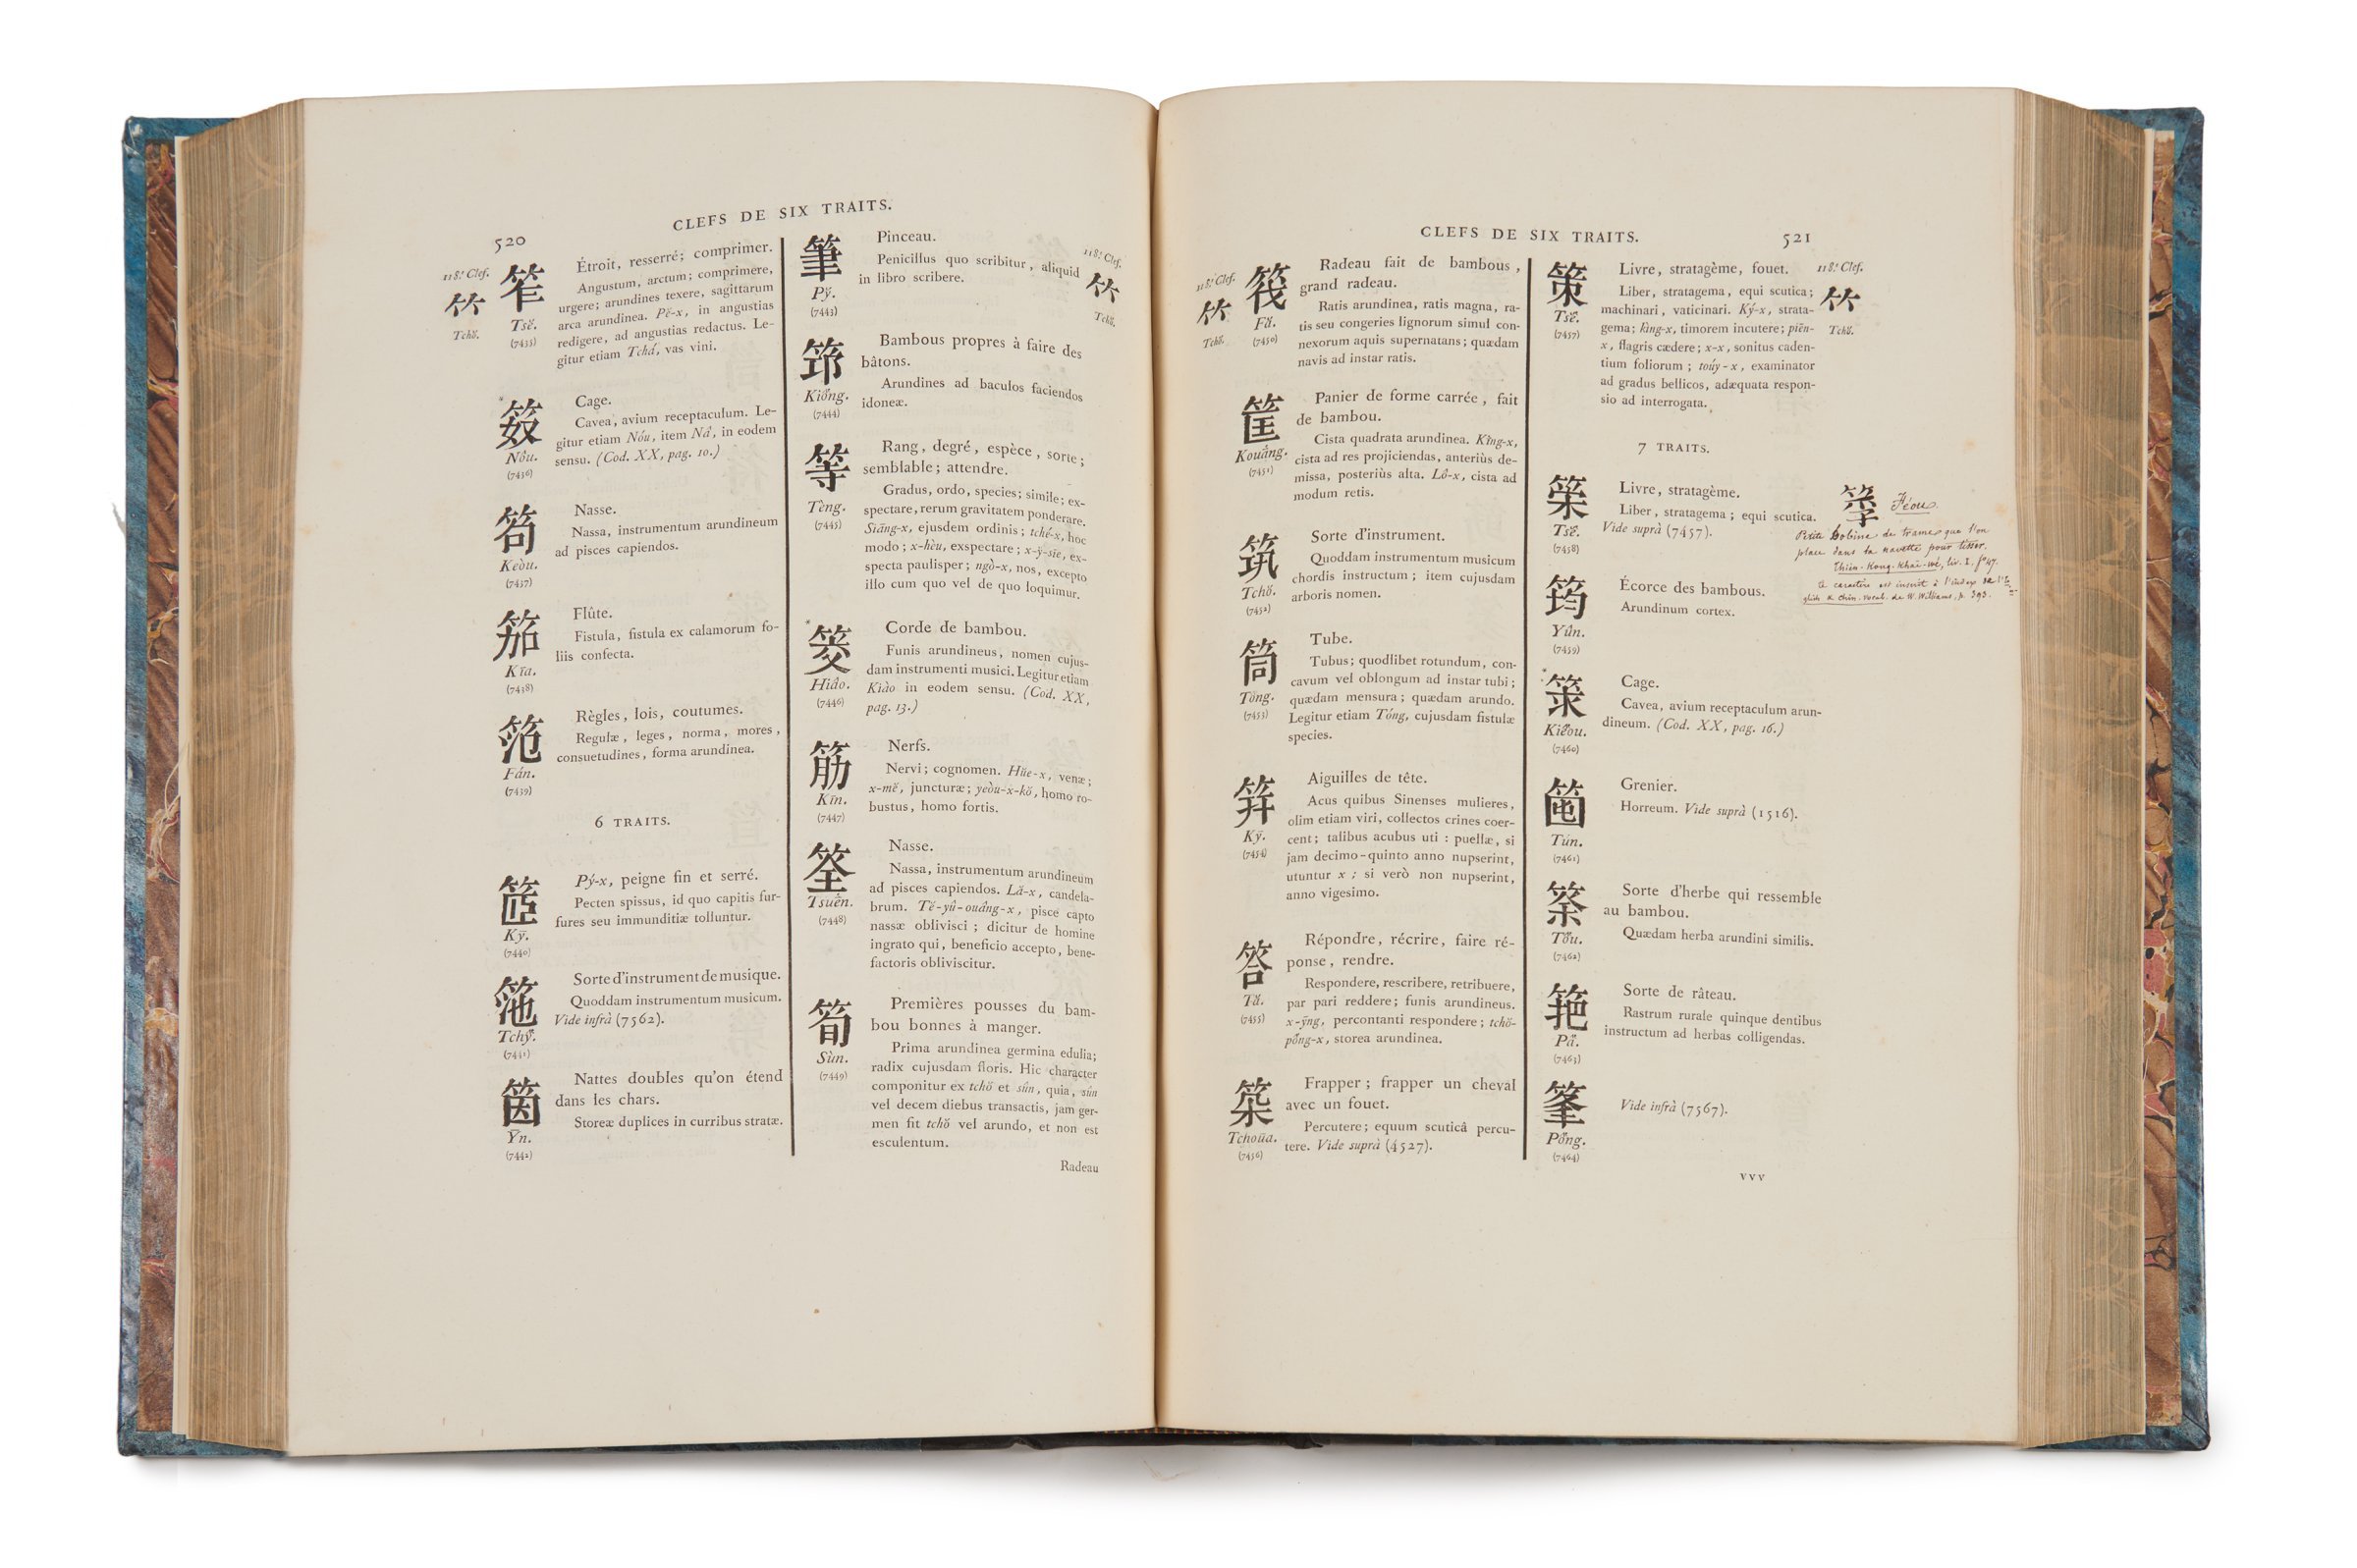 CLEFS DE SIX TRAITS.
520
118.e Clef.
竹
Tchŏ.
笮
Tsĕ.
(7435)
Étroit, resserré; comprimer.
Angustum, arctum; comprimere,
urgere; arundines texere, sagittarum
arca arundinea. Pĕ-x, in angustias
redigere, ad angustias redactus. Le-
gitur etiam Tchá, vas vini.
笯
Nôu.
(7436)
Cage.
Cavea, avium receptaculum. Le-
gitur etiam Nóu, item Ná, in eodem
sensu. (Cod. XX, pag. 10.)
笱
Keòu.
(7437)
Nasse.
Nassa, instrumentum arundineum
ad pisces capiendos.
笳
Kīa.
(7438)
Flûte.
Fistula, fistula ex calamorum fo-
liis confecta.
笵
Fán.
(7439)
Règles, lois, coutumes.
Regulæ, leges, norma, mores,
consuetudines, forma arundinea.
6 TRAITS.
Kȳ.
(7440)
Pý-x, peigne fin et serré.
Pecten spissus, id quo capitis fur-
fures seu immunditiæ tolluntur.
筂
(7441)
Sorte d'instrument de musique.
Quoddam instrumentum musicum.
Vide infrà (7562).
筃
Ȳn.
(7442)
Nattes doubles qu'on étend
dans les chars.
Storeæ duplices in curribus stratæ.
筆
Py̆.
(7443)
Pinceau.
Penicillus quo scribitur, aliquid
in libro scribere.
118.e Clef.
竹
Tchŏ.
筇
Kiông.
(7444)
Bambous propres à faire des
bâtons.
Arundines ad baculos faciendos
idoneæ.
等
Tèng.
(7445)
Rang, degré, espèce, sorte;
semblable; attendre.
Gradus, ordo, species; simile; ex-
spectare, rerum gravitatem ponderare.
Siāng-x, ejusdem ordinis; tché-x, hoc
modo; x-hèu, exspectare; x-y̆-sīe, ex-
specta paulisper; ngò-x, nos, excepto
illo cum quo vel de quo loquimur.
筊
Hiâo.
(7446)
Corde de bambou.
Funis arundineus, nomen cujus-
dam instrumenti musici. Legitur etiam
Kiào in eodem sensu. (Cod. XX,
pag. 13.)
筋
Kīn.
(7447)
Nerfs.
Nervi; cognomen. Hüe-x, venæ;
x-mĕ, juncturæ; yeòu-x-kŏ, homo ro-
bustus, homo fortis.
筌
Tsuên.
(7448)
Nasse.
Nassa, instrumentum arundineum
ad pisces capiendos. Lă-x, candela-
brum. Tĕ-yû-ouâng-x, pisce capto
nassæ oblivisci; dicitur de homine
ingrato qui, beneficio accepto, bene-
factoris obliviscitur.
筍
Sùn.
(7449)
Premières pousses du bam-
bou bonnes à manger.
Prima arundinea germina edulia;
radix cujusdam floris. Hic character
componitur ex tchŏ et sûn, quia, sûn
vel decem diebus transactis, jam ger-
men fit tchŏ vel arundo, et non est
esculentum.
Radeau
CLEFS DE SIX TRAITS.
521
118.e Clef.
竹
Tchŏ.
筏
Fă.
(7450)
Radeau fait de bambous,
grand radeau.
Ratis arundinea, ratis magna, ra-
tis seu congeries lignorum simul con-
nexorum aquis supernatans; quædam
navis ad instar ratis.
筐
Kouāng.
(7451)
Panier de forme carrée, fait
de bambou.
Cista quadrata arundinea. Kîng-x,
cista ad res projiciendas, anteriùs de-
missa, posteriùs alta. Lô-x, cista ad
modum retis.
筑
Tchŏ.
(7452)
Sorte d'instrument.
Quoddam instrumentum musicum
chordis instructum; item cujusdam
arboris nomen.
筒
Tông.
(7453)
Tube.
Tubus; quodlibet rotundum, con-
cavum vel oblongum ad instar tubi;
quædam mensura; quædam arundo.
Legitur etiam Tóng, cujusdam fistulæ
species.
筓
Kȳ.
(7454)
Aiguilles de tête.
Acus quibus Sinenses mulieres,
olim etiam viri, collectos crines coer-
cent; talibus acubus uti : puellæ, si
jam decimo-quinto anno nupserint,
utuntur x ; si verò non nupserint,
anno vigesimo.
答
Tă.
(7455)
Répondre, récrire, faire ré-
ponse, rendre.
Respondere, rescribere, retribuere,
par pari reddere; funis arundineus.
x-ȳng, percontanti respondere; tchŏ-
pông-x, storea arundinea.
築
Tchoūa.
(7456)
Frapper; frapper un cheval
avec un fouet.
Percutere; equum scuticâ percu-
tere. Vide suprà (4527).
策
Tsĕ.
(7457)
Livre, stratagème, fouet.
Liber, stratagema, equi scutica;
machinari, vaticinari. Ký-x, strata-
gema; kàng-x, timorem incutere; piēn-
x, flagris cædere; x-x, sonitus caden-
tium foliorum; toúy-x, examinator
ad gradus bellicos, adæquata respon-
sio ad interrogata.
118.e Clef.
竹
Tchŏ.
7 TRAITS.
筞
Tsĕ.
(7458)
Livre, stratagème.
Liber, stratagema; equi scutica.
Vide suprà (7457).
筟 Féou
Petite bobine de trame que l'on
place dans la navette pour tisser.
Thien-Kong-Khaï-wé, liv. I, f° 47.
Ce caractère est inscrit à l'index de l'En-
glish & Chin. vocab. de W. Williams, p. 393.
筠
Yûn.
(7459)
Écorce des bambous.
Arundinum cortex.
Kiêou.
(7460)
Cage.
Cavea, avium receptaculum arun-
dineum. (Cod. XX, pag. 16.)
Tún.
(7461)
Grenier.
Horreum. Vide suprà (1516).
筡
Tôu.
(7462)
Sorte d'herbe qui ressemble
au bambou.
Quædam herba arundini similis.
Pâ.
(7463)
Sorte de râteau.
Rastrum rurale quinque dentibus
instructum ad herbas colligendas.
Pông.
(7464)
Vide infrà (7567).
VVV